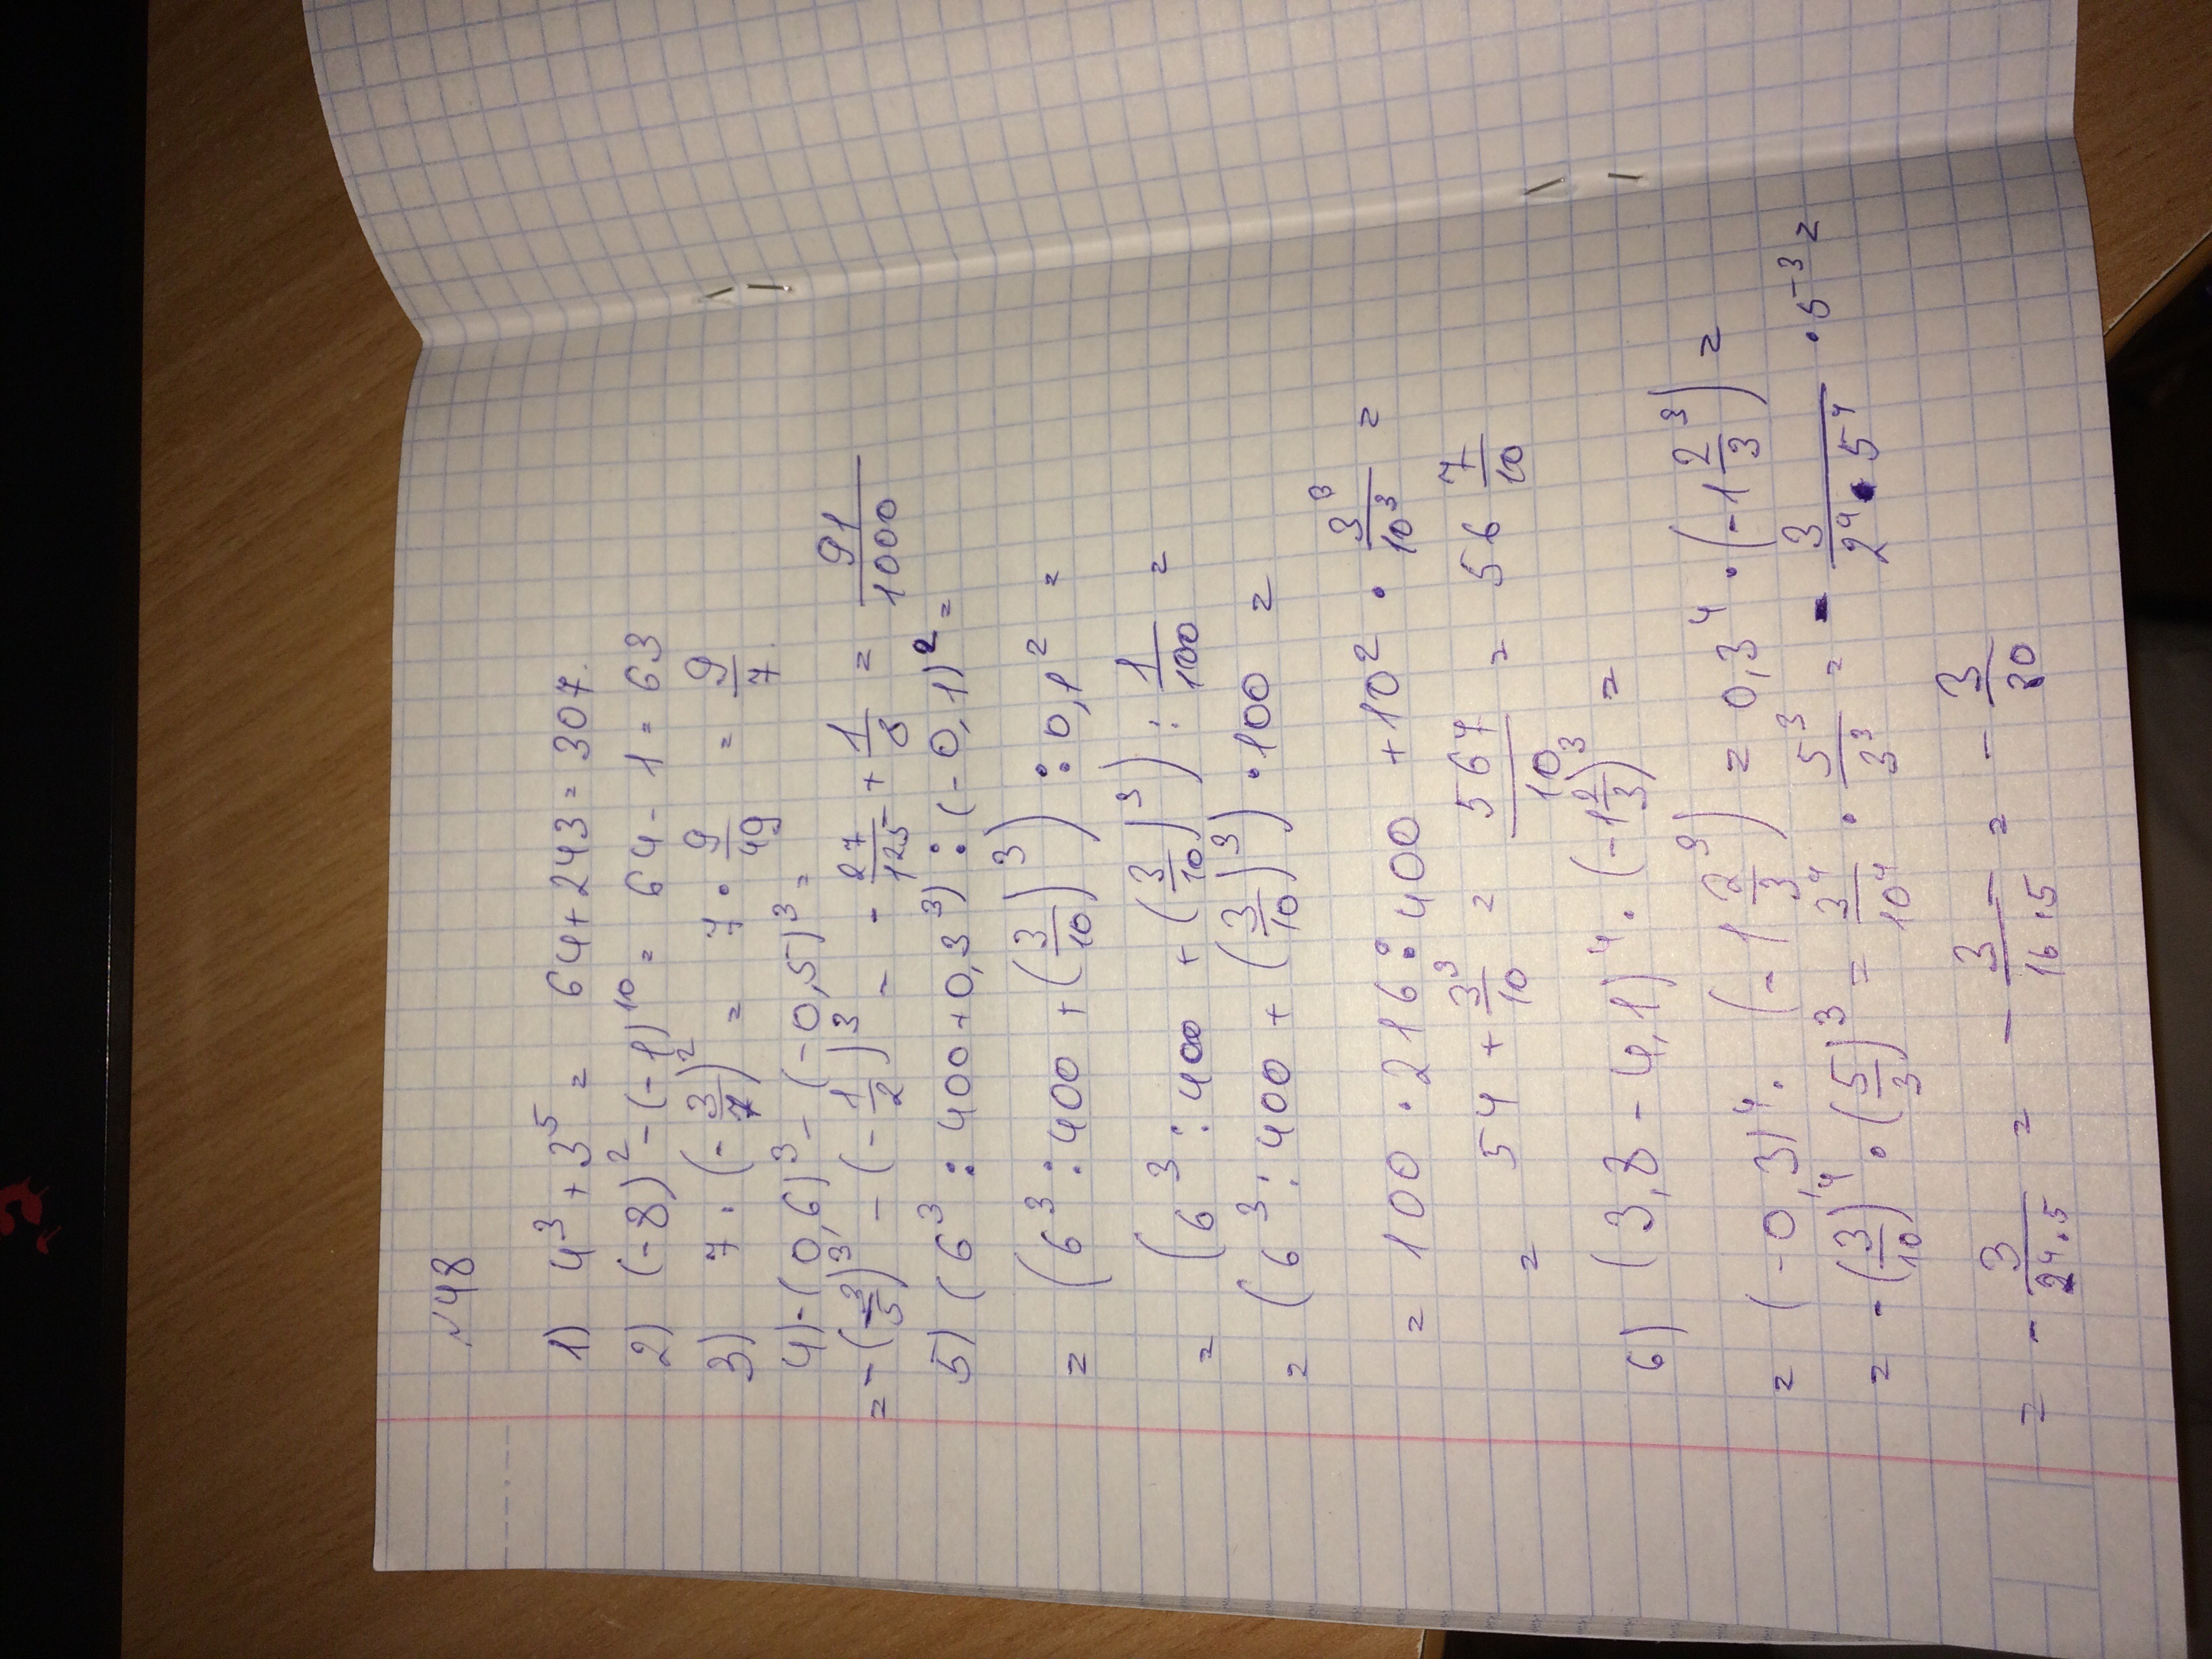 №48
1) 4³ + 3⁵ = 64 + 243 = 307.
2) (-8)² - (-1)¹⁰ = 64 - 1 = 63
3) 7 · (- 3/7)² = 7 · 9/49 = 9/7.
4) -(0,6)³ - (-0,5)³ =
= -(3/5)³ - (- 1/2)³ = - 27/125 + 1/8 = - 91/1000
5) (6³ : 400 + 0,3³) : (-0,1)² =
= (6³ : 400 + (3/10)³) : 0,1² =
= (6³ : 400 + (3/10)³) : 1/100 =
= (6³ : 400 + (3/10)³) · 100 =
= 100 · 216 : 400 + 10² · 3³/10³ =
= 54 + 3³/10 = 567/10 = 56 7/10
6) (3,8 - 4,1)⁴ · (-1 2/3)³ =
= (-0,3)⁴ · (-1 2/3 ³) = 0,3⁴ · (-1 2/3 ³) =
= -(3/10)⁴ · (5/3)³ = 3⁴/10⁴ · 5³/3³ = - 3/2⁴·5⁴ · 5⁻³ =
= - 3/2⁴·5 = - 3/16·5 = - 3/80